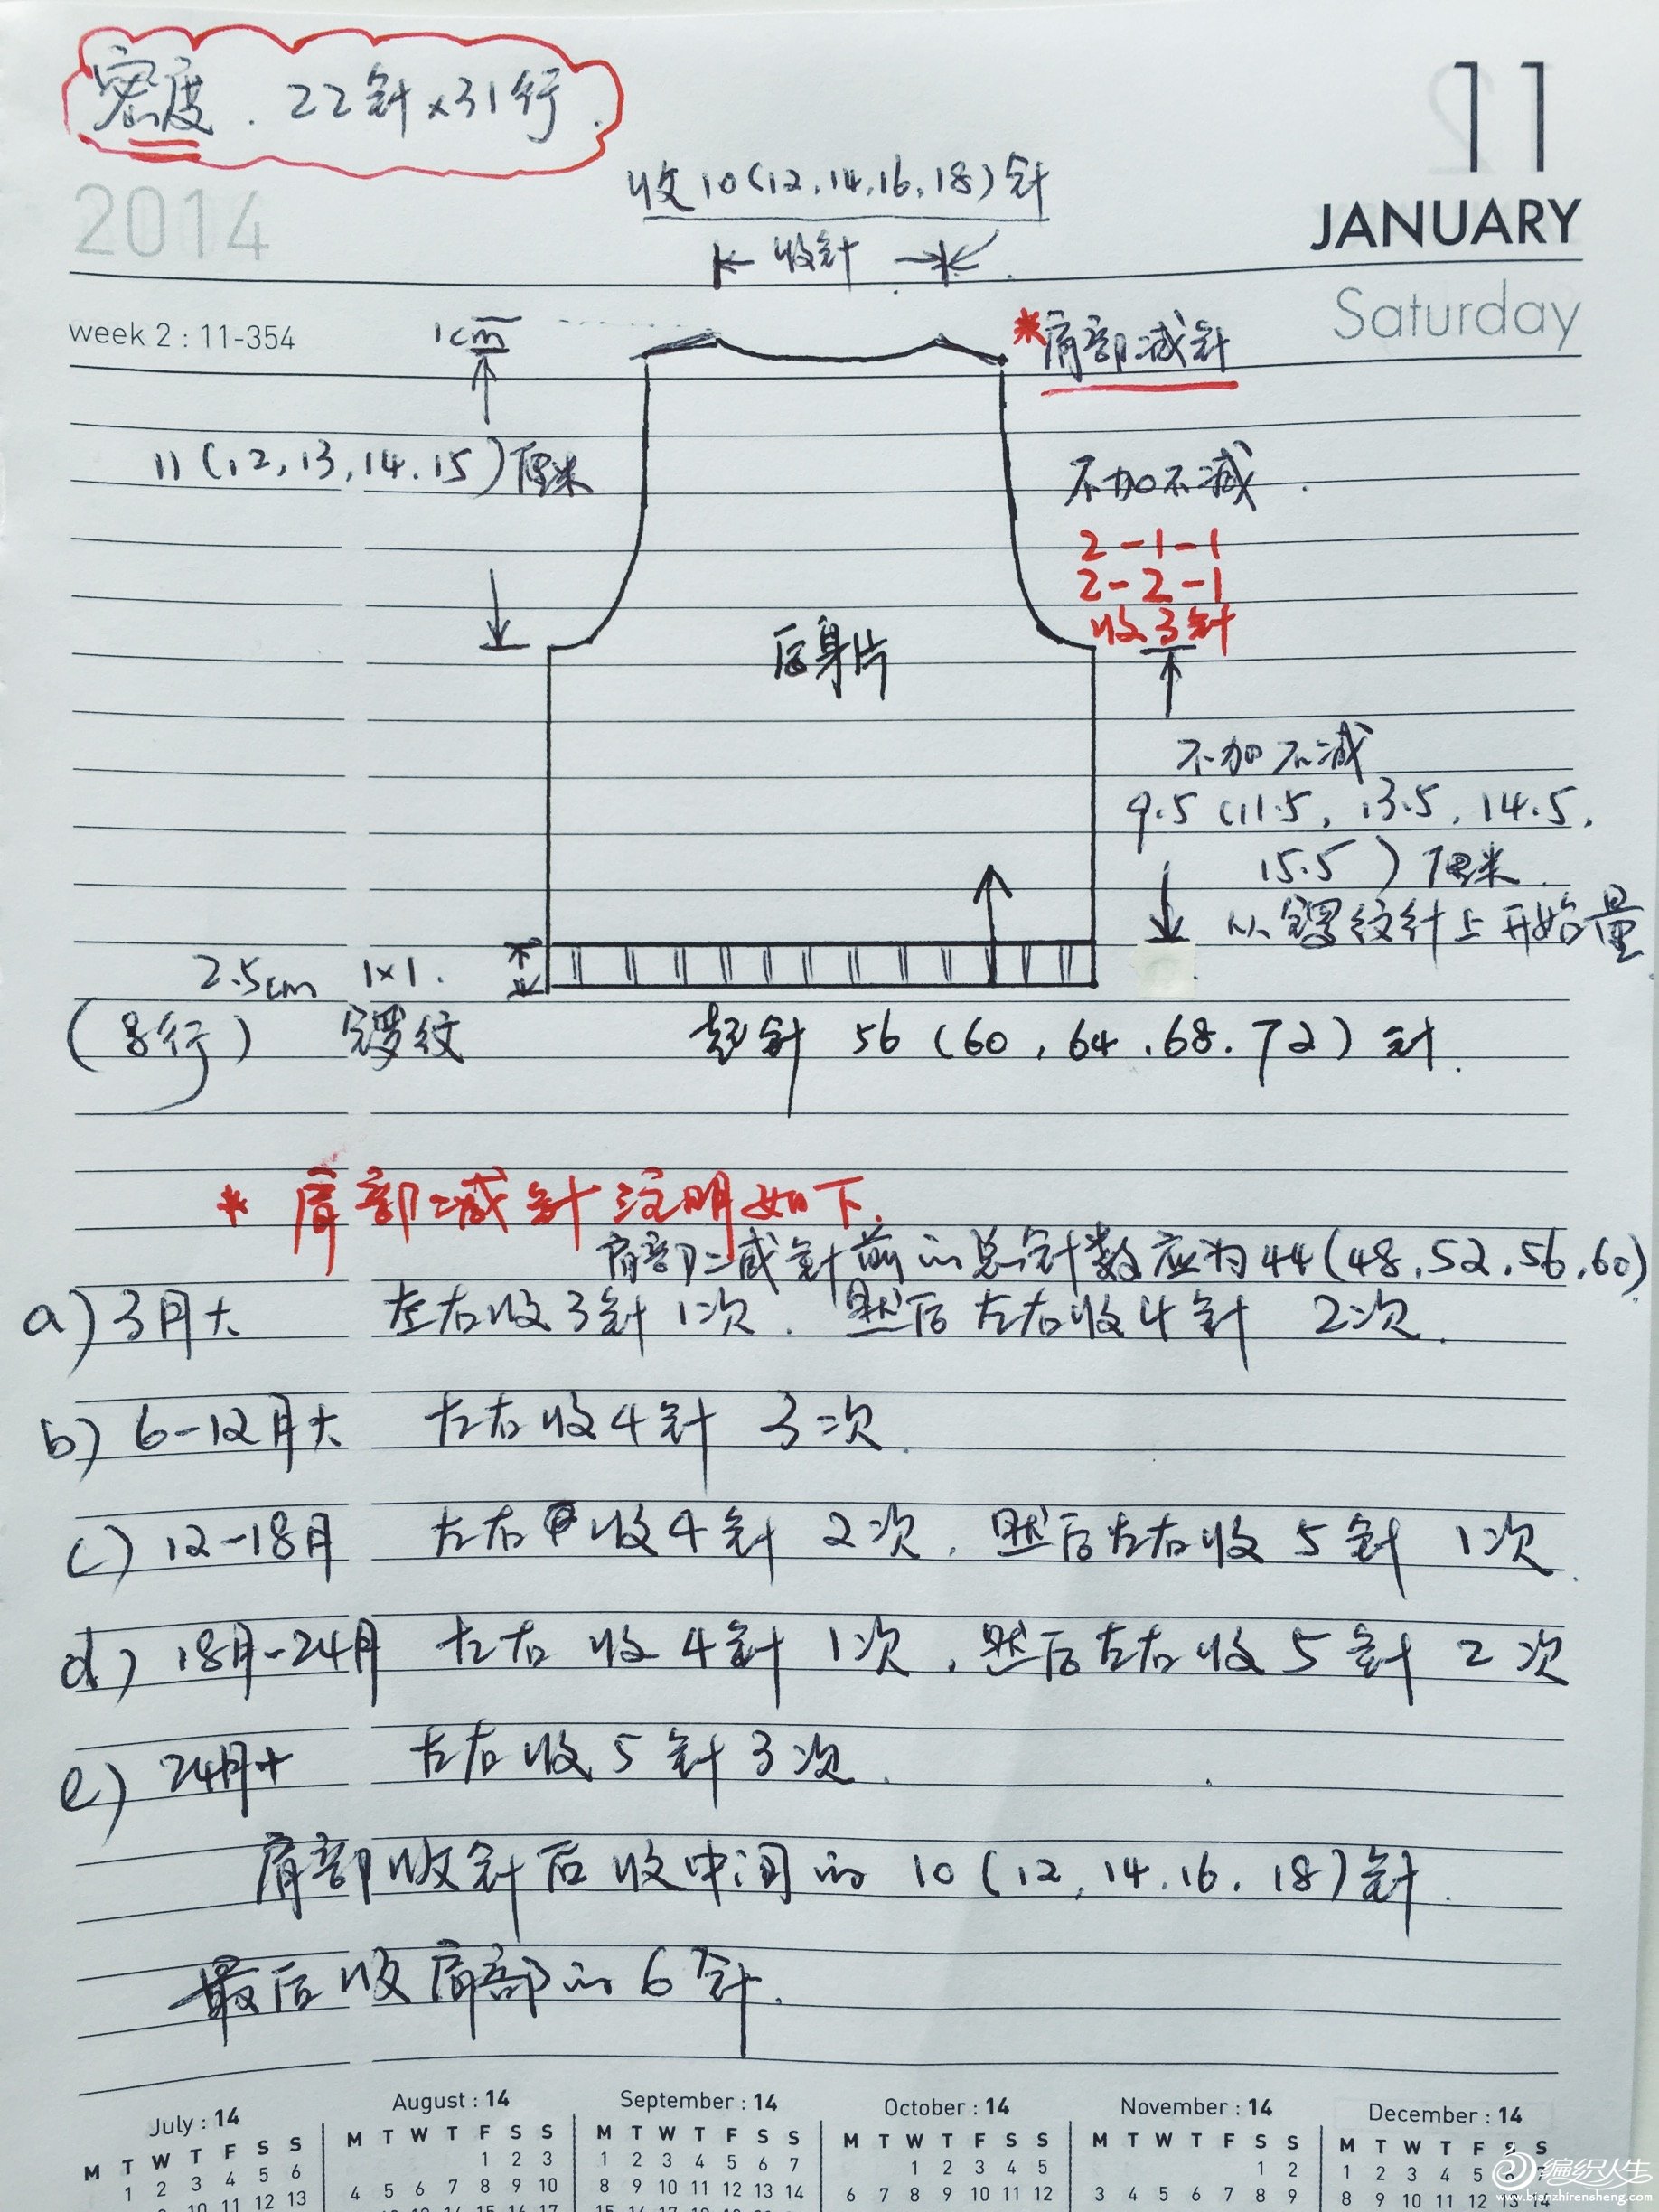 密度. 22针×31行.
11
2014
JANUARY
收10(12,14,16,18)针
收针
Saturday
week 2 : 11-354
1cm
*肩部减针
11(12,13,14.15)厘米
不加不减.
2-1-1
2-2-1
收3针
后身片
不加不减
9.5(11.5, 13.5, 14.5,
15.5)厘米.
从锣纹针上开始量
2.5cm 1×1.
(8行) 锣纹
起针 56(60, 64.68.72)针.
* 肩部减针注明如下.
肩部减针前的总针数应为44(48.52.56.60)
a) 3月大 左右收3针1次. 然后左右收4针 2次.
b) 6-12月大 左右收4针 3次.
c) 12-18月 左右收4针 2次, 然后左右收5针 1次.
d) 18月-24月 左右收4针 1次, 然后左右收5针 2次
e) 24月+ 左右收5针3次.
肩部收针后收中间的 10(12,14.16.18)针.
最后收肩部的6针.
July : 14
August : 14
September : 14
October : 14
November : 14
December : 14
M T W T F S S
M T W T F S S
M T W T F S S
M T W T F S S
M T W T F S S
M T W T F S S
1 2 3 4 5 6
1 2 3
1 2 3 4 5 6 7
1 2 3 4 5
1 2
1 2 3 4 5
10 11 12 13
4 5 6 7 8 9 10
8 9 10 11 12 13 14
6 7 8 9 10 11 12
3 4 5 6 7 8 9
8 9 10 11 12 13 14
编织人生
www.bianzhirensheng.com